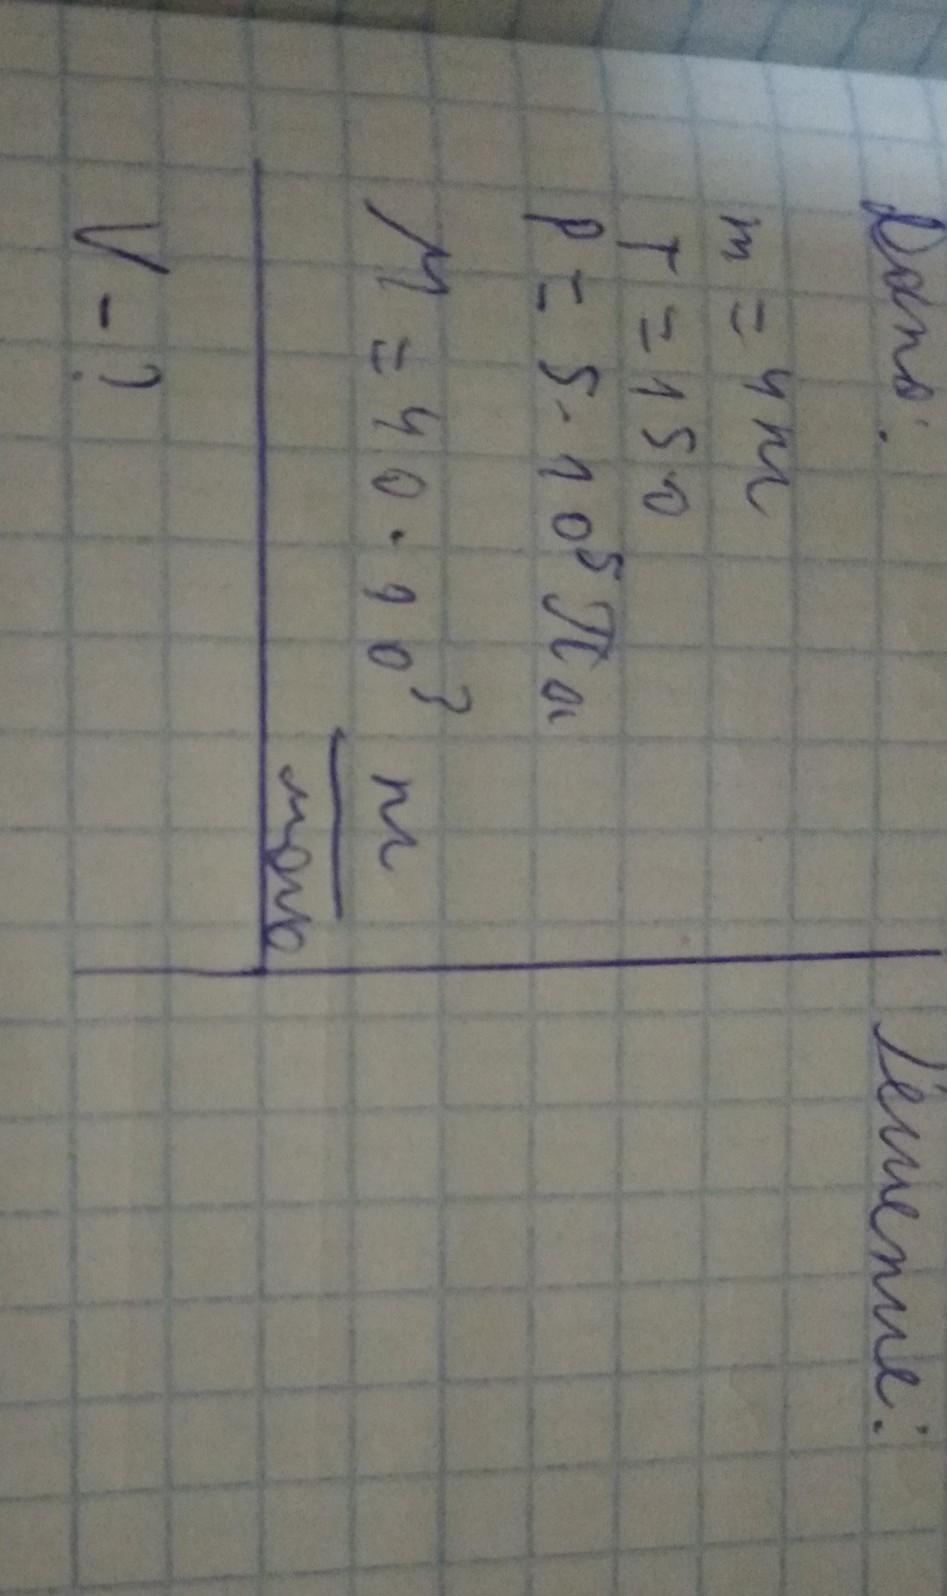 Дано:
m = 4 кг
T = 150
p = 5·10⁵ Па
M = 40·10³ кг/моль
V - ?
Решение: